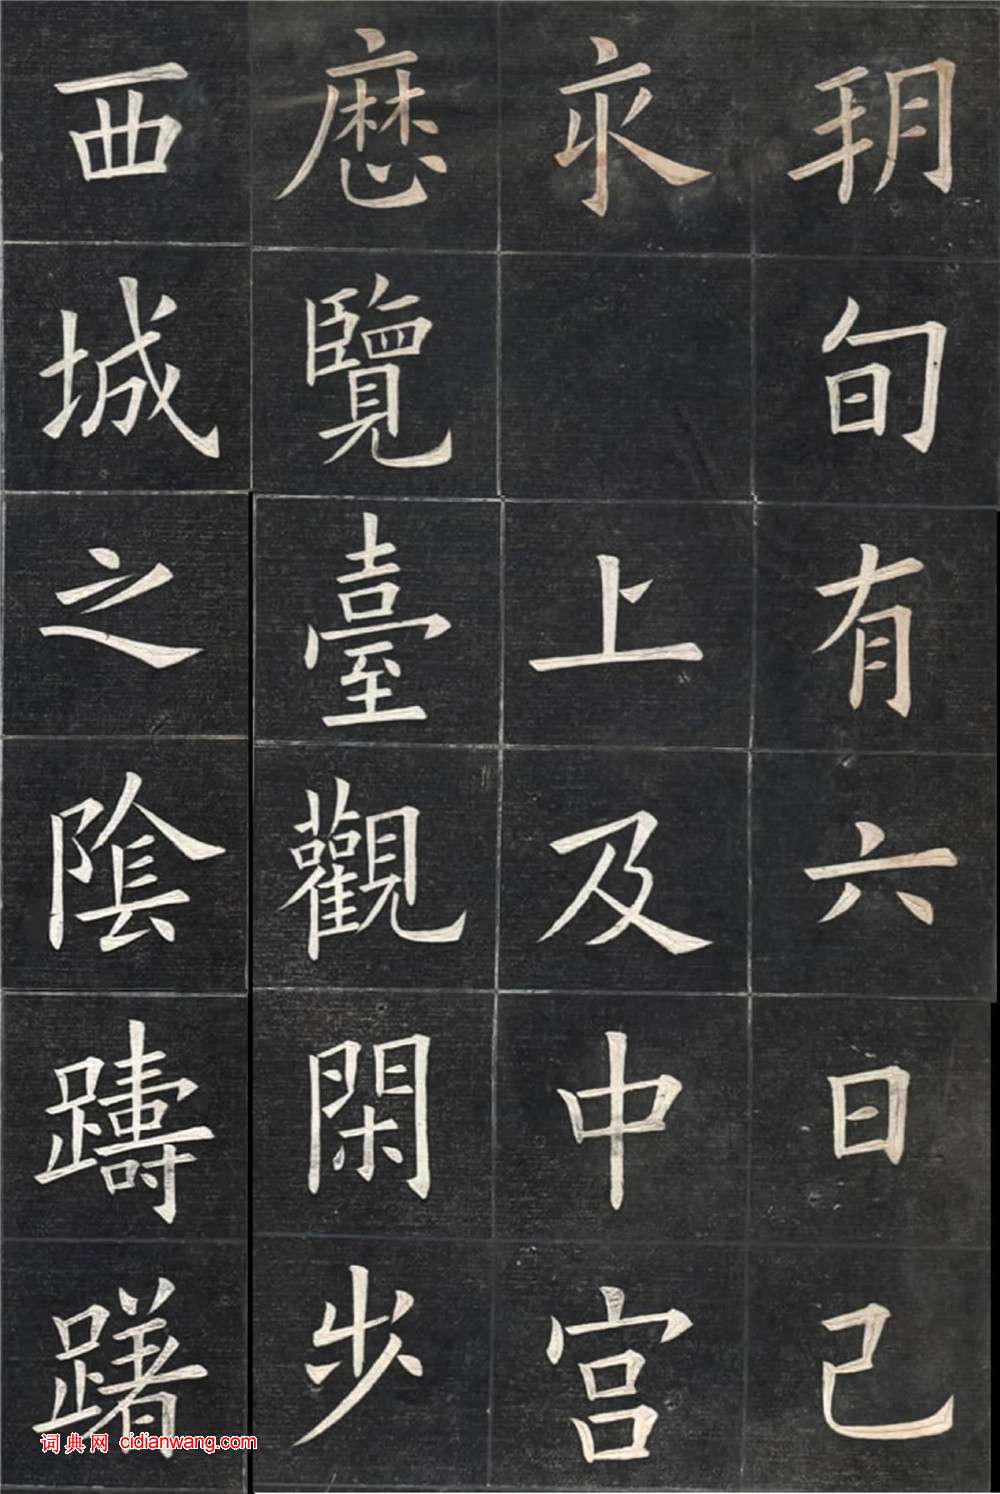 朔旬有六日己
亥 上及中宮
歷覽臺觀閑步
西城之陰躊躇
词典网 cidianwang.com